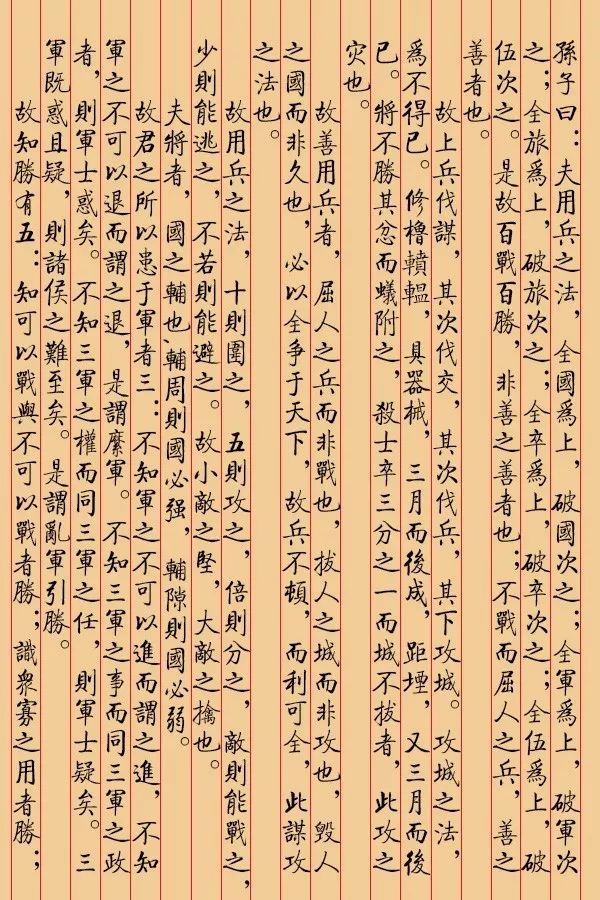 孫子曰：夫用兵之法，全國爲上，破國次之；全軍爲上，破軍次
之；全旅爲上，破旅次之；全卒爲上，破卒次之；全伍爲上，破
伍次之。是故百戰百勝，非善之善者也；不戰而屈人之兵，善之
善者也。
故上兵伐謀，其次伐交，其次伐兵，其下攻城。攻城之法，
爲不得已。修櫓轒轀，具器械，三月而後成，距堙，又三月而後
已。將不勝其忿而蟻附之，殺士卒三分之一而城不拔者，此攻之
灾也。
故善用兵者，屈人之兵而非戰也，拔人之城而非攻也，毀人
之國而非久也，必以全争于天下，故兵不頓，而利可全，此謀攻
之法也。
故用兵之法，十則圍之，五則攻之，倍則分之，敵則能戰之，
少則能逃之，不若則能避之。故小敵之堅，大敵之擒也。
夫將者，國之輔也，輔周則國必强，輔隙則國必弱。
故君之所以患于軍者三：不知軍之不可以進而謂之進，不知
軍之不可以退而謂之退，是謂縻軍。不知三軍之事而同三軍之政
者，則軍士惑矣。不知三軍之權而同三軍之任，則軍士疑矣。三
軍既惑且疑，則諸侯之難至矣。是謂亂軍引勝。
故知勝有五：知可以戰與不可以戰者勝；識衆寡之用者勝；